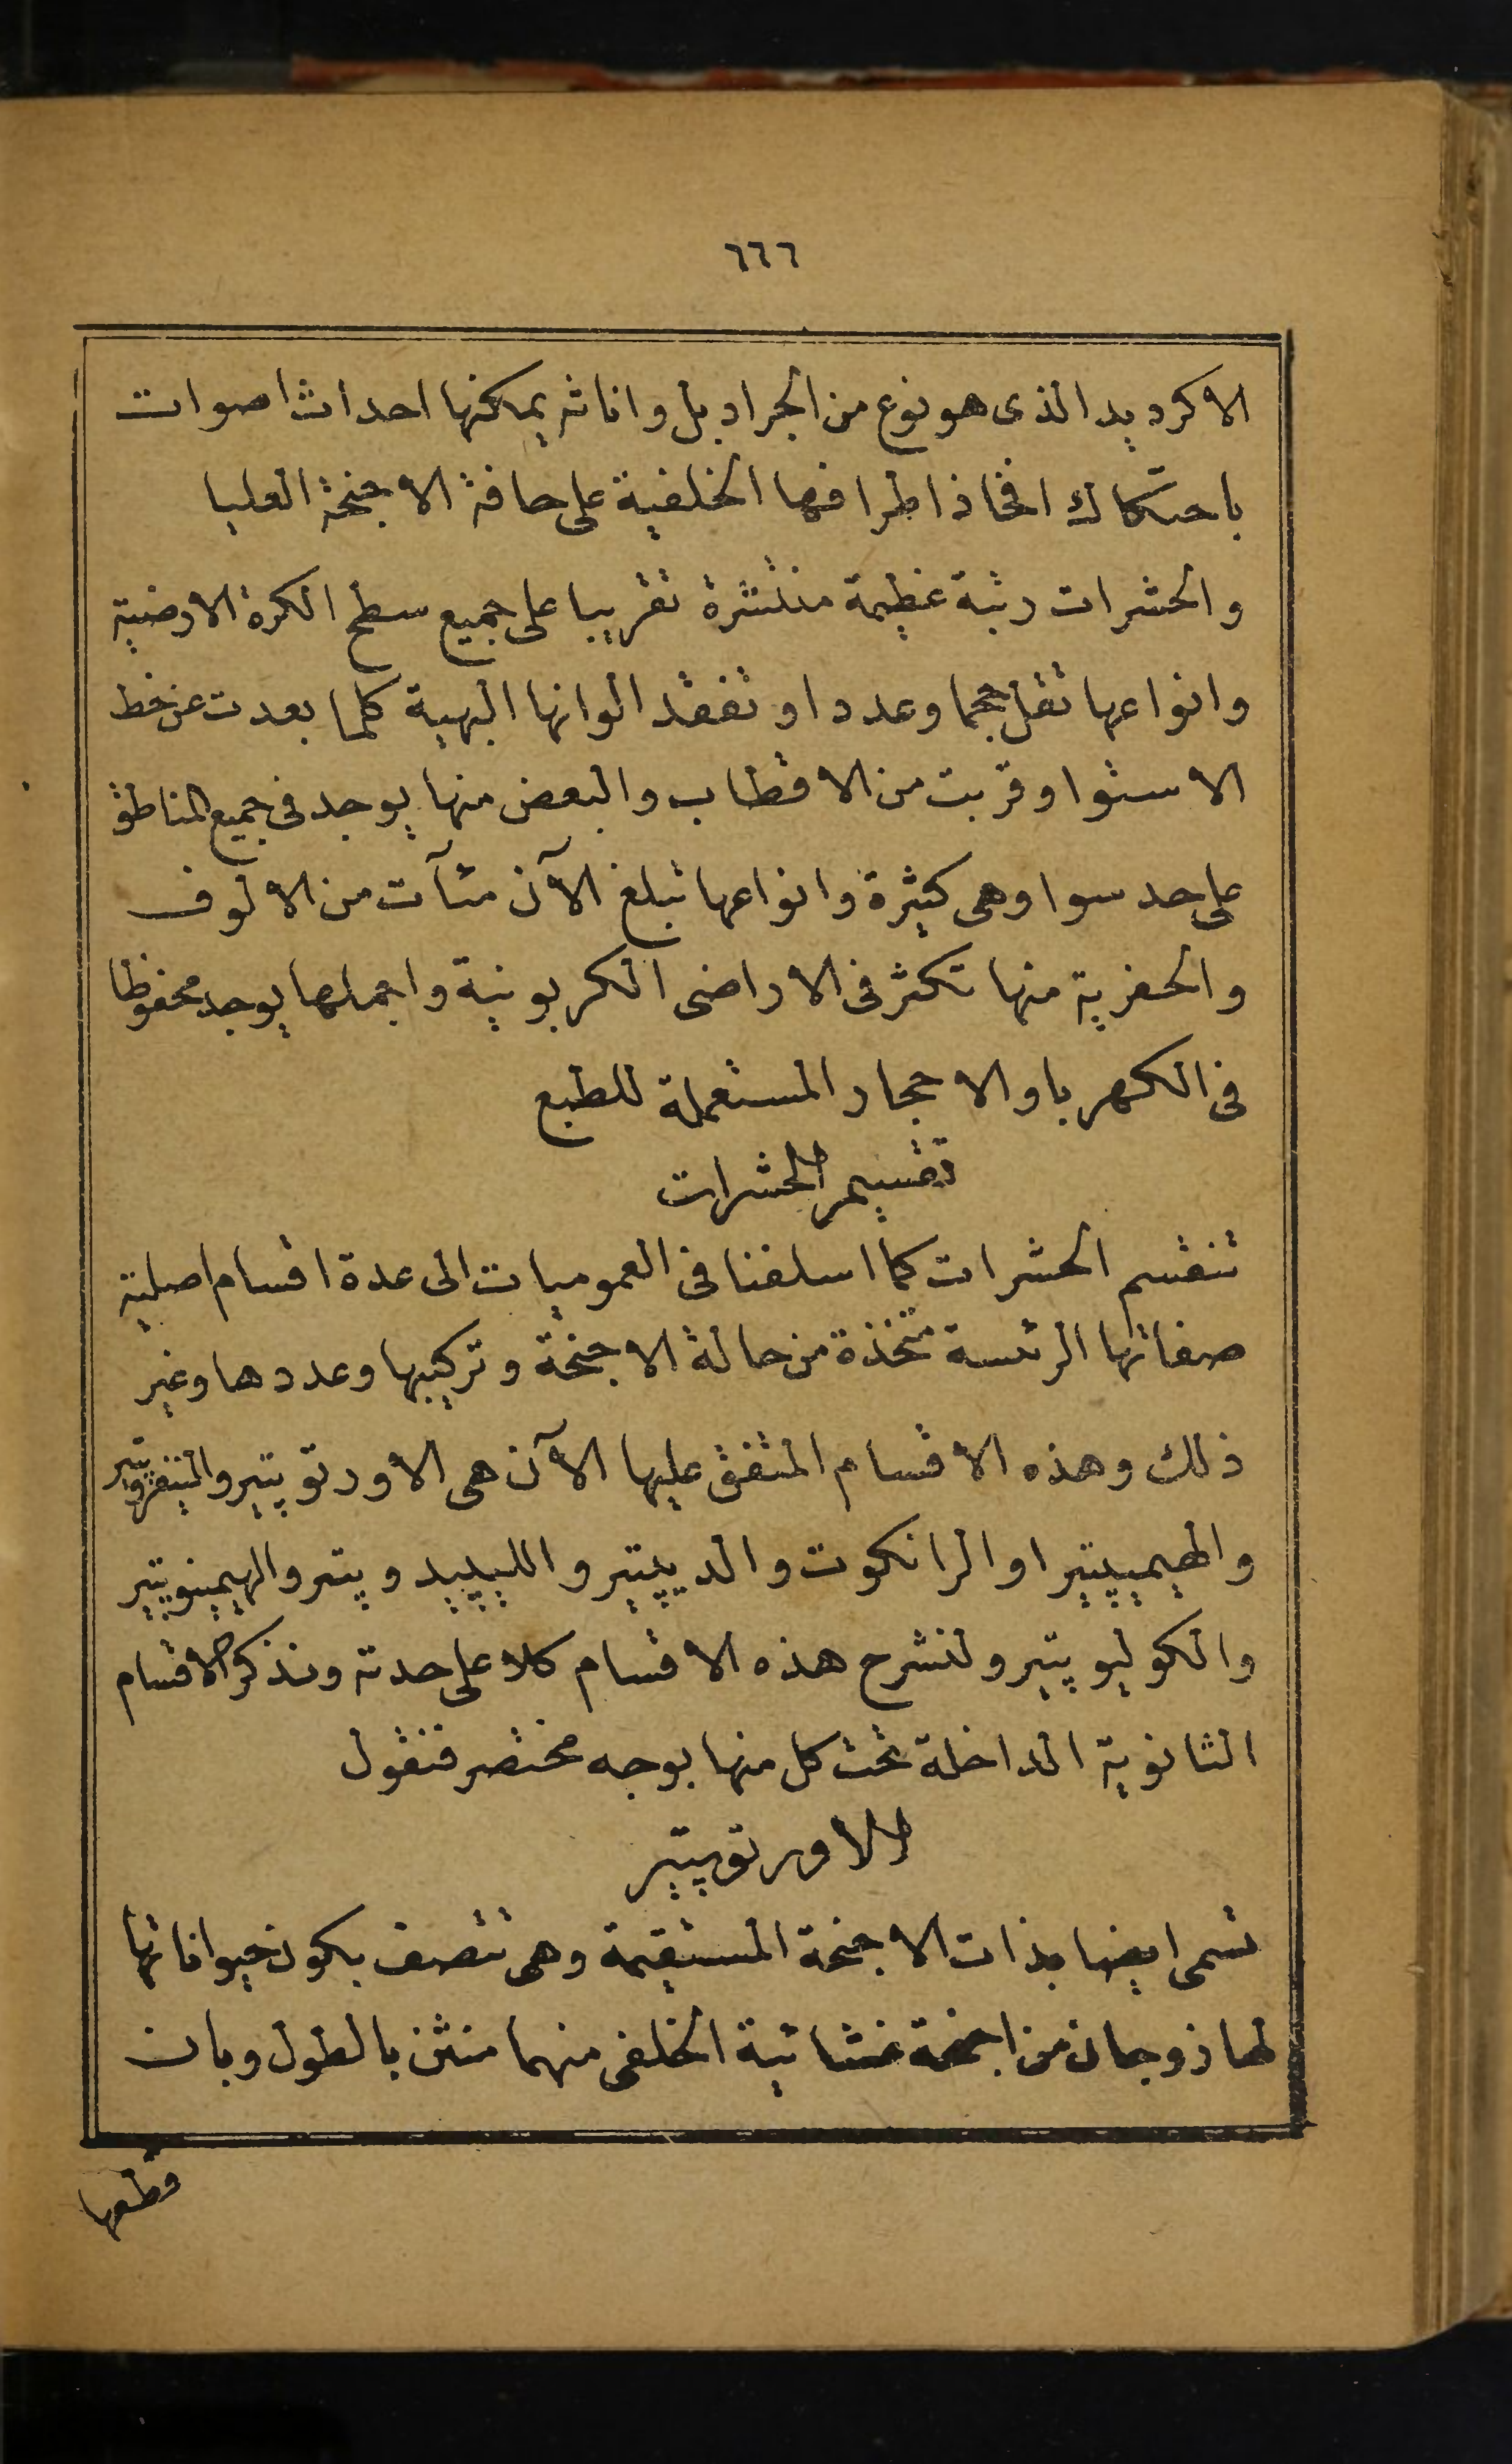 ٦٦٦
الاكرديد الذى هو نوع من الجراد بل واناثه يمكنها احداث اصوات
باحتكاك افخاذ اطرافها الخلفية على حافة الاجنحة العليا
والحشرات رتبة عظيمة منتشرة تقريبا على جميع سطح الكرة الارضية
وانواعها تقل حجما وعددا وتفقد الوانها البهية كلما بعدت عن خط
الاستوا وقربت من الاقطاب والبعض منها يوجد فى جميع المناطق
على حد سوا وهى كثيرة وانواعها تبلغ الآن مئآت من الالوف
والحفرية منها تكثر فى الاراضى الكربونية واجملها يوجد محفوظا
فى الكهربا والاحجار المستعملة للطبع
تقسيم الحشرات
تنقسم الحشرات كما اسلفنا فى العموميات الى عدة اقسام اصلية
صفاتها الرئسة متخذة من حالة الاجنحة وتركيبها وعددها وغير
ذلك وهذه الاقسام المتفق عليها الآن هى الاورتوپتير والنيفروپتير
والهيميپتير او الرانكوت والديپتير والليپيدوپتر والهيمينوپتير
والكوليوپتير ولنشرح هذه الاقسام كلا على حدته ونذكر الاقسام
الثانوية الداخلة تحت كل منها بوجه مختصر فنقول
الاورتوپتير
تسمى ايضا بذات الاجنحة المستقيمة وهى تتصف بكون حيواناتها
لها زوجان من اجنحة غشائية الخلفى منهما منثن بالطول وبان
قطعها